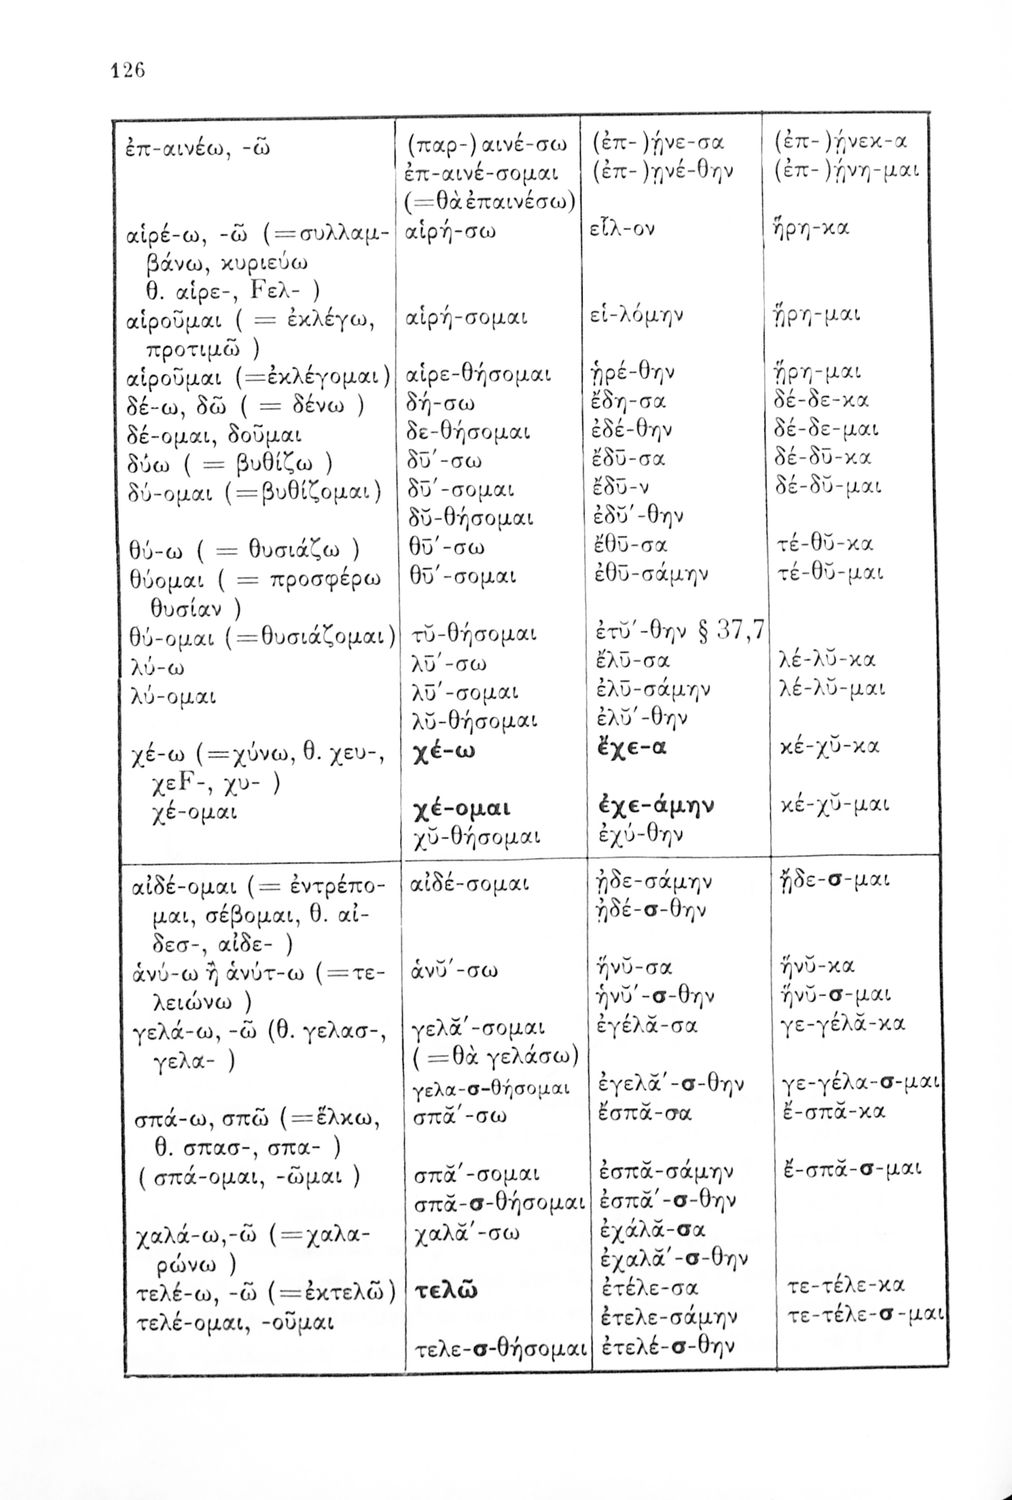 126
ἐπ-αινέω, -ῶ (παρ-) αινέ-σω (ἐπ- )ῄνε-σα (ἐπ- )ῄνεκ-α
ἐπ-αινέ-σομαι (ἐπ- )ῃνέ-θην (ἐπ- )ῄνη-μαι
(=θὰ ἐπαινέσω)
αἱρέ-ω, -ῶ (=συλλαμ- αἱρή-σω εἷλ-ον ᾕρη-κα
βάνω, κυριεύω
θ. αἱρε-, Fελ- )
αἱροῦμαι ( = ἐκλέγω, αἱρή-σομαι εἱ-λόμην ᾕρη-μαι
προτιμῶ )
αἱροῦμαι (=ἐκλέγομαι) αἱρε-θήσομαι ᾑρέ-θην ᾕρη-μαι
δέ-ω, δῶ ( = δένω ) δή-σω ἔδη-σα δέ-δε-κα
δέ-ομαι, δοῦμαι δε-θήσομαι ἐδέ-θην δέ-δε-μαι
δύω ( = βυθίζω ) δῡ́-σω ἔδῡ-σα δέ-δῡ-κα
δύ-ομαι (=βυθίζομαι) δῡ́-σομαι ἔδῡ-ν δέ-δῠ-μαι
δῠ-θήσομαι ἐδῠ́-θην
θύ-ω ( = θυσιάζω ) θῡ́-σω ἔθῡ-σα τέ-θῠ-κα
θύομαι ( = προσφέρω θῡ́-σομαι ἐθῡ-σάμην τέ-θῠ-μαι
θυσίαν )
θύ-ομαι (=θυσιάζομαι) τῠ-θήσομαι ἐτῠ́-θην § 37,7
λύ-ω λῡ́-σω ἔλῡ-σα λέ-λῠ-κα
λύ-ομαι λῡ́-σομαι ἐλῡ-σάμην λέ-λῠ-μαι
λῠ-θήσομαι ἐλῠ́-θην
χέ-ω (=χύνω, θ. χευ-, χέ-ω ἔχε-α κέ-χῠ-κα
χεF-, χυ- )
χέ-ομαι χέ-ομαι ἐχε-άμην κέ-χῠ-μαι
χῠ-θήσομαι ἐχύ-θην
αἰδέ-ομαι (= ἐντρέπο- αἰδέ-σομαι ᾐδε-σάμην ᾔδε-σ-μαι
μαι, σέβομαι, θ. αἰ- ᾐδέ-σ-θην
δεσ-, αἰδε- )
ἁνύ-ω ἢ ἁνύτ-ω (=τε- ἁνῠ́-σω ἥνῠ-σα ἥνῠ-κα
λειώνω ) ἡνῠ́-σ-θην ἥνῠ-σ-μαι
γελά-ω, -ῶ (θ. γελασ-, γελᾰ́-σομαι ἐγέλᾰ-σα γε-γέλᾰ-κα
γελα- ) ( =θὰ γελάσω)
γελα-σ-θήσομαι ἐγελᾰ́-σ-θην γε-γέλα-σ-μαι
σπά-ω, σπῶ (=ἕλκω, σπᾰ́-σω ἔσπᾰ-σα ἔ-σπᾰ-κα
θ. σπασ-, σπα- )
( σπά-ομαι, -ῶμαι ) σπᾰ́-σομαι ἐσπᾰ-σάμην ἔ-σπᾰ-σ-μαι
σπᾰ-σ-θήσομαι ἐσπᾰ́-σ-θην
χαλά-ω,-ῶ (=χαλα- χαλᾰ́-σω ἐχάλᾰ-σα
ρώνω ) ἐχαλᾰ́-σ-θην
τελέ-ω, -ῶ (=ἐκτελῶ) τελῶ ἐτέλε-σα τε-τέλε-κα
τελέ-ομαι, -οῦμαι ἐτελε-σάμην τε-τέλε-σ-μαι
τελε-σ-θήσομαι ἐτελέ-σ-θην